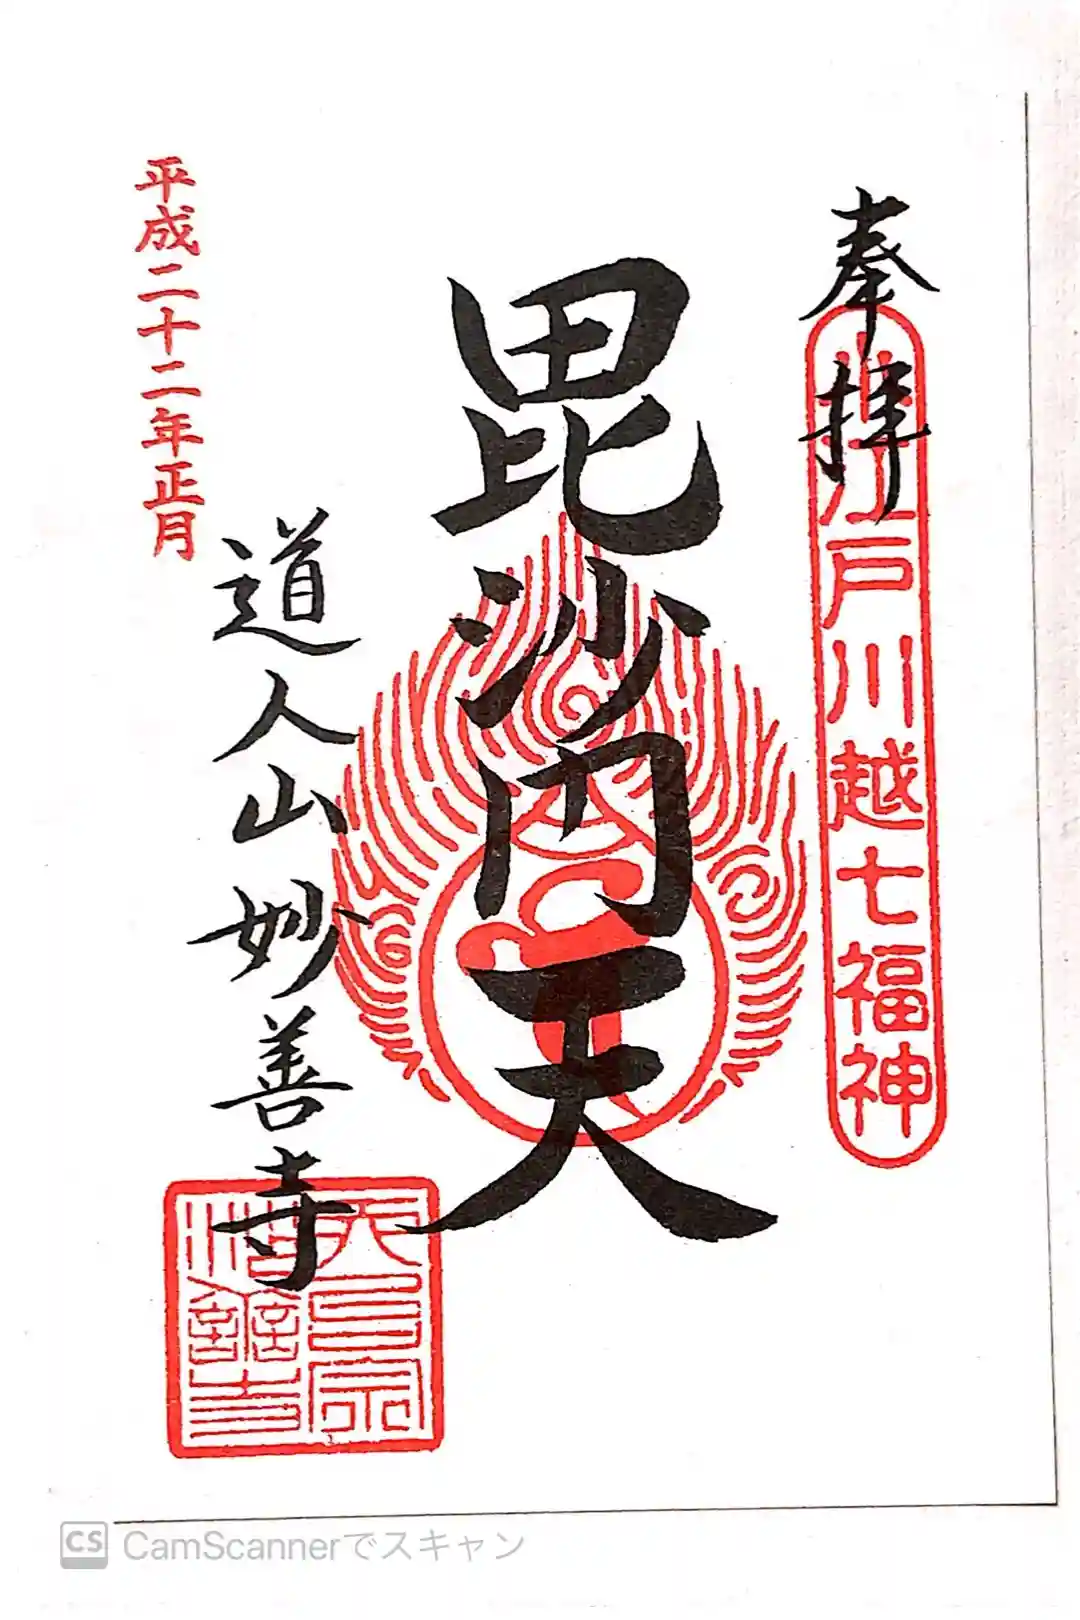 奉拝
小江戸川越七福神
毘沙門天
道人山妙善寺
平成二十二年正月
天台宗
妙善寺
CS CamScannerでスキャン